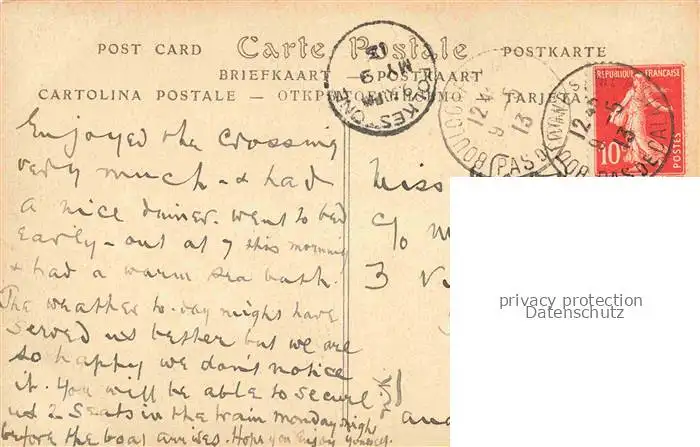 POST CARD Carte Postale POSTKARTE
BRIEFKAART — POSTKAART
CARTOLINA POSTALE — ОТКРЫТОЕ ПИСЬМО — TARJETA
FOLKESTONE
MY 9
13
BOULOGNE
PAS DE CALAIS
12 45
9 - 5
13
REPUBLIQUE FRANÇAISE
10
POSTES
Enjoyed the crossing
very much - & had
a nice dinner. went to bed
early - out at 7 this morning
& had a warm sea bath.
The weather to-day might have
served us better but we are
so happy we don't notice
it. You will be able to secure
us 2 seats in the train monday night
before the boat arrives. Hope you enjoy yourself
Miss
c/o
3
privacy protection
Datenschutz